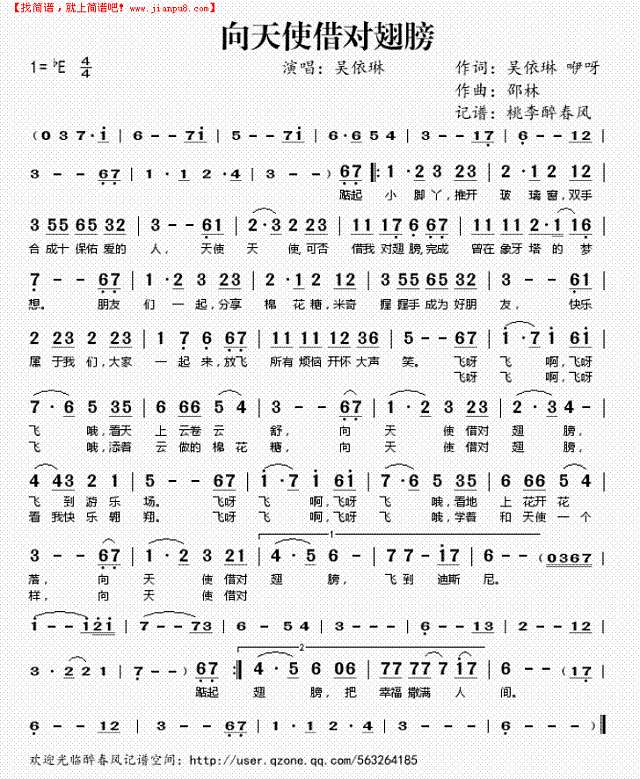 【找简谱，就上简谱吧！www.jianpu8.com】
向天使借对翅膀
1=♭E 4/4 演唱：吴依琳 作词：吴依琳 咿呀
作曲：邵林
记谱：桃李醉春风
(0 3 7·i | 6 - - 7i | 5 - - 7i | 6·6 5 4 | 3 - - 17 | 6 - - 12 |
3 - - 67 | 1·1 2·4 | 3 - -) 67 ‖: 1·2 3 23 | 2·1 2 12 |
踮起 小 脚丫，推开 玻 璃 窗，双手
3 55 65 32 | 3 - - 61 | 2·3 2 23 | 11 17 6 67 | 11 11 2·1 16 |
合 成十 保佑 爱的 人， 天使 天 使，可否 借我 对翅 膀，完成 曾在 象牙 塔 的 梦
7 - - 67 | 1·2 3 23 | 2·1 2 12 | 3 55 65 32 | 3 - - 61 |
想。 朋友 们 一 起，分享 棉 花 糖，米奇 握 握手 成为 好朋 友， 快乐
2 23 2 23 | 1 7 6 67 | 11 11 12 36 | 5 - - 67 | i·7 i 6i |
属 于我 们，大家 一 起 来，放飞 所有 烦恼 开怀 大声 笑。 飞呀 飞 啊，飞呀
飞呀 飞 啊，飞呀
7·6 5 35 | 6 66 5 4 | 3 - - 67 | 1·2 3 23 | 2·3 4 - |
飞 哦，看天 上 云卷 云 舒， 向 天 使 借对 翅 膀，
飞 哦，添着 云 做的 棉 花 糖， 向 天 使 借对 翅 膀，
4 43 2 1 | 5 - - 67 | i·7 i 6i | 7·6 5 35 | 6 66 5 4 |
飞 到 游 乐 场。 飞呀 飞 啊，飞呀 飞 哦，看地 上 花开 花
看 我快 乐 翱 翔。 飞呀 飞 啊，飞呀 飞 哦，学着 和 天使 一 个
3 - - 67 | 1·2 3 21 | 4·5 5 67 | 7 7 - i7 | 6 - - (0367 |
落， 向 天 使 借对 翅 膀， 飞 到 迪斯 尼。
样， 向 天 使 借对
i - - i2i | 7 - - 73 | 6 - 5 4 | 3 - - 6 | 6 - 1 3 | 2 - - 12 |
3·2 2 1 | 7 - -) 67 :‖ 4·5 6 06 | 77 77 7 i7 | 6 - - (17 |
踮起 翅 膀，把 幸福 撒满 人 间。
6 - - 12 | 3 - - 24 | 3 - - 17 | 6 - - 12 | 7 - - - | 6 - - -) ‖
欢迎光临醉春风记谱空间：http://user.qzone.qq.com/563264185